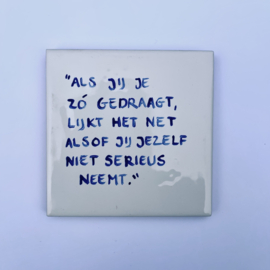 "ALS JIJ JE
ZÓ GEDRAAGT,
LIJKT HET NET
ALSOF JIJ JEZELF
NIET SERIEUS
NEEMT."